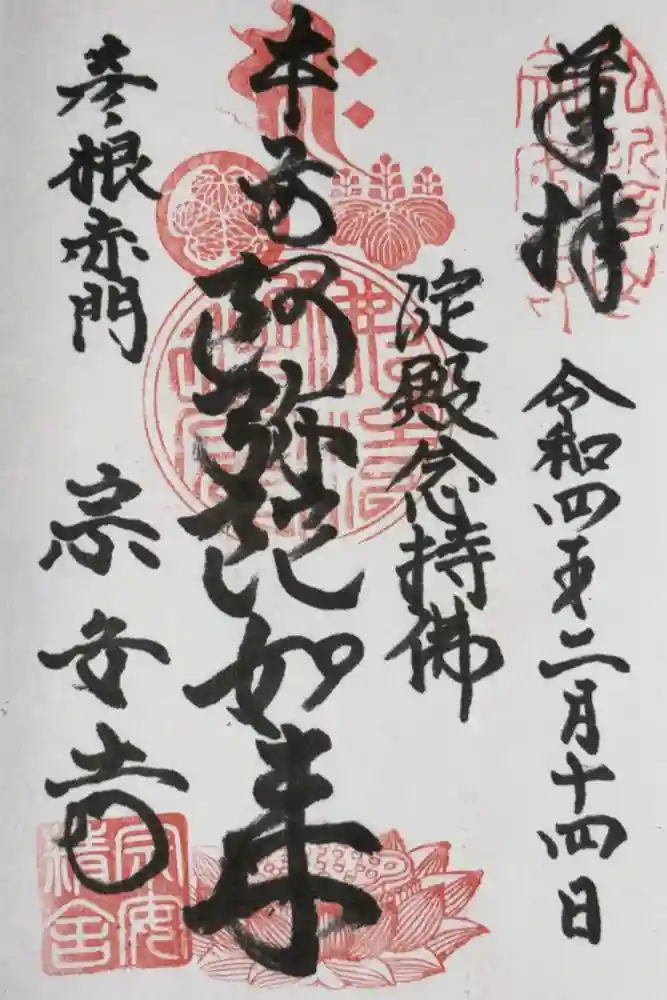 奉拝
令和四年二月十四日
淀殿念持佛
本尊
阿弥陀如来
彦根赤門
宗安寺
宗安
精舎